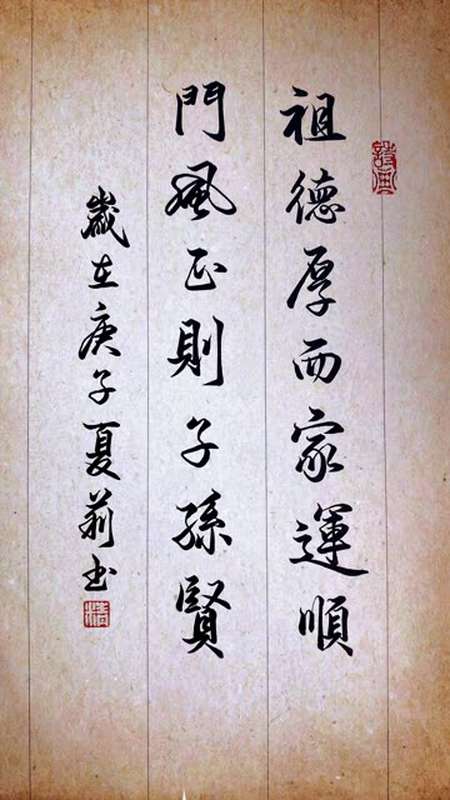 祖德厚而家運順
門風正則子孫賢
歲在庚子夏莉書